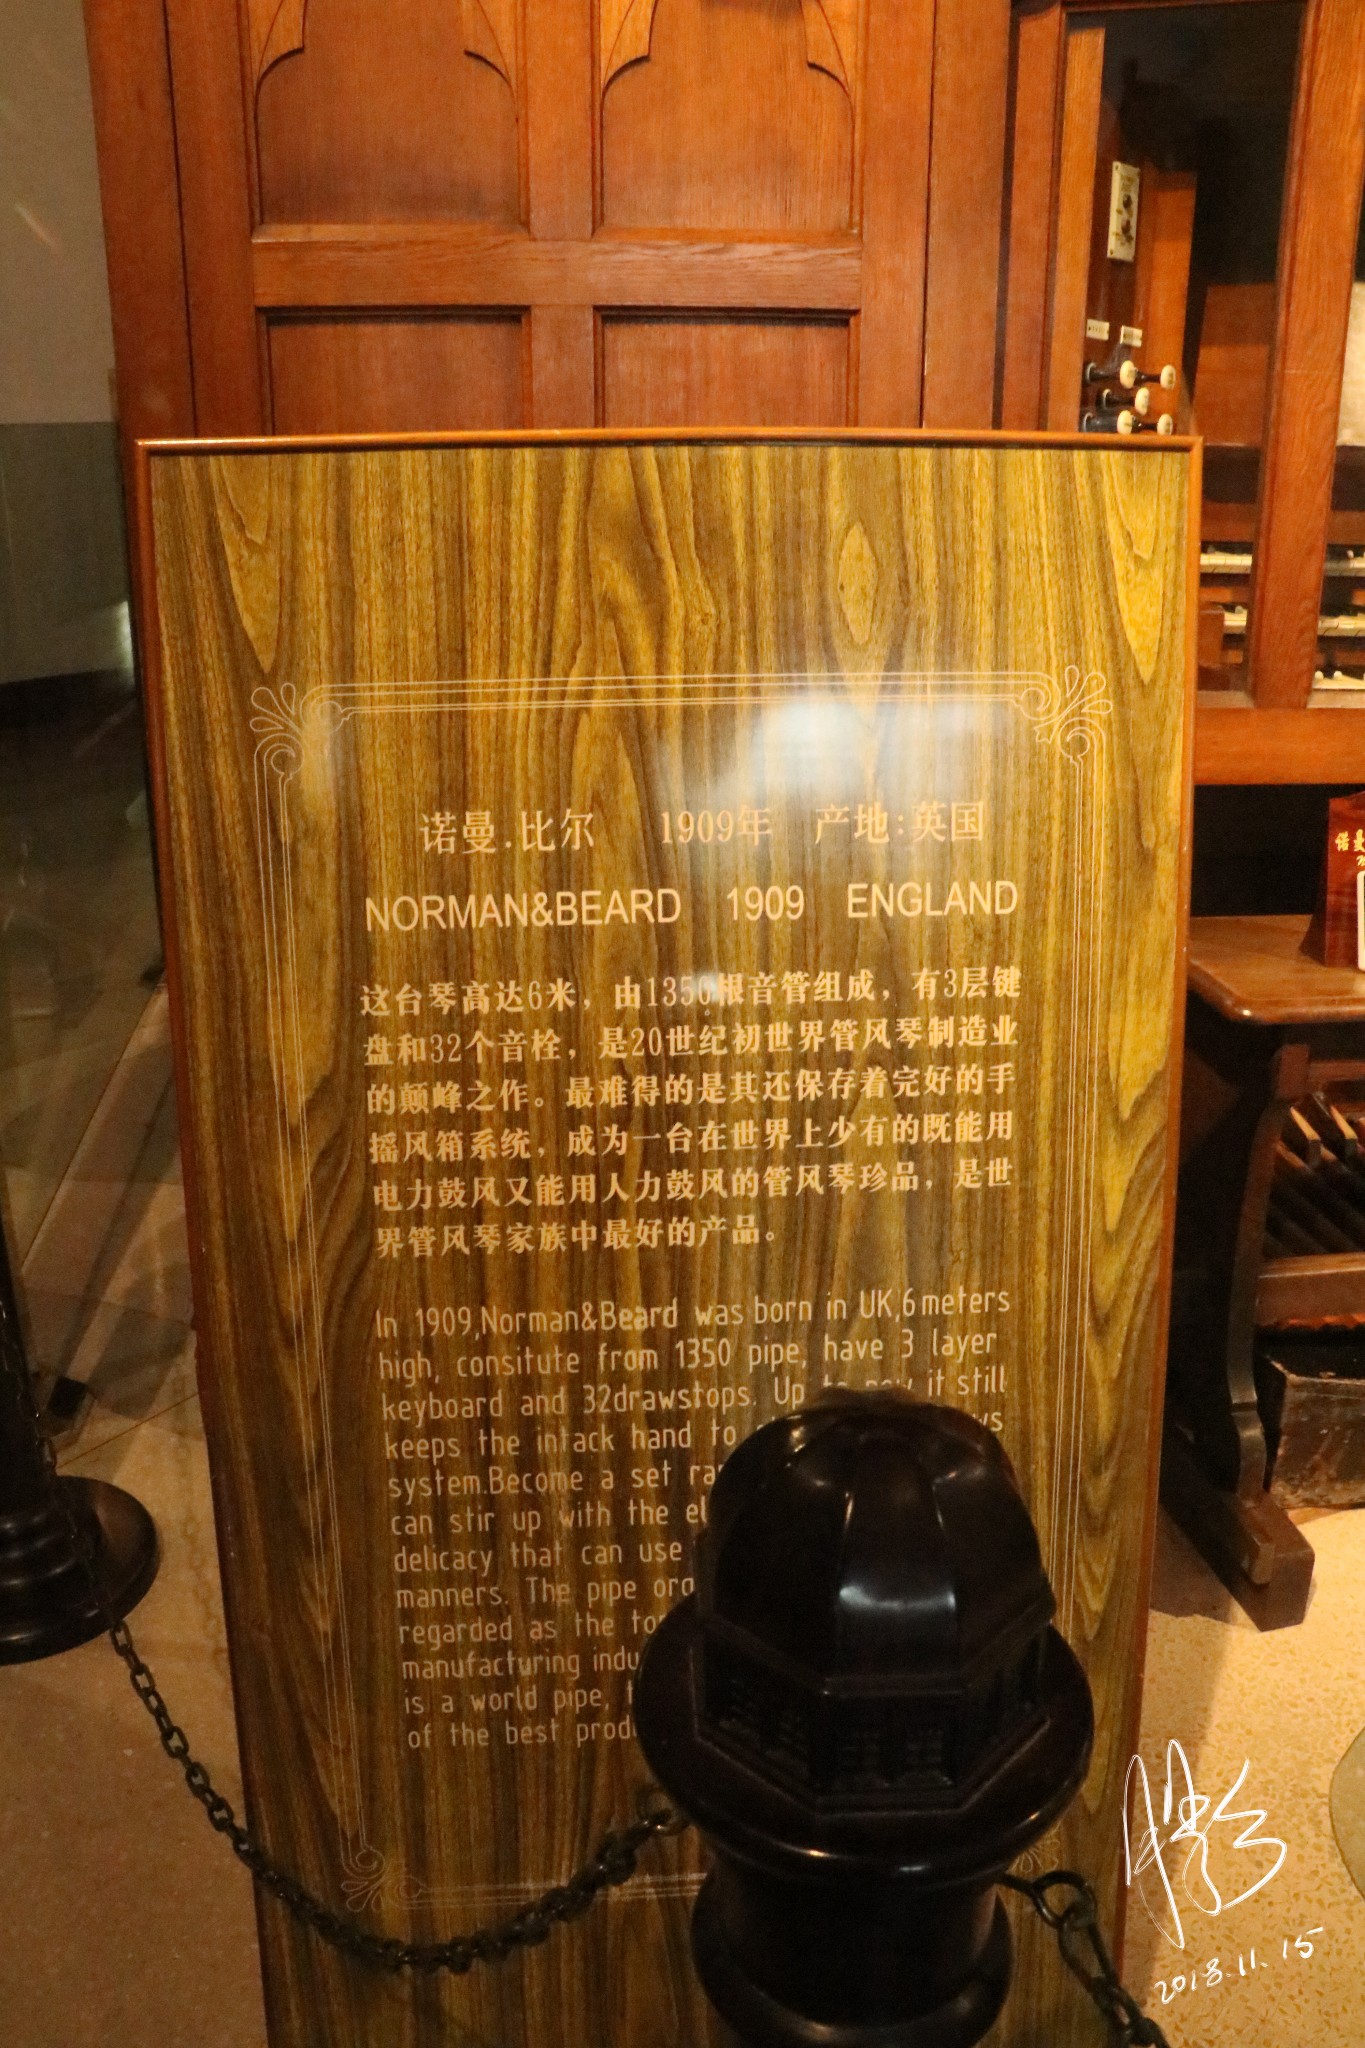 诺曼.比尔 1909年 产地:英国
NORMAN&BEARD 1909 ENGLAND
这台琴高达6米，由1350根音管组成，有3层键
盘和32个音栓，是20世纪初世界管风琴制造业
的颠峰之作。最难得的是其还保存着完好的手
摇风箱系统，成为一台在世界上少有的既能用
电力鼓风又能用人力鼓风的管风琴珍品，是世
界管风琴家族中最好的产品。
In 1909,Norman&Beard was born in UK,6meters
high, consitute from 1350 pipe, have 3 layer
keyboard and 32drawstops. Up to now it still
keeps the intack hand to
system.Become a set
can stir up with the
delicacy that can use
manners. The pipe
regarded as the
manufacturing
is a world pipe,
of the best
诺曼
2018.11.15